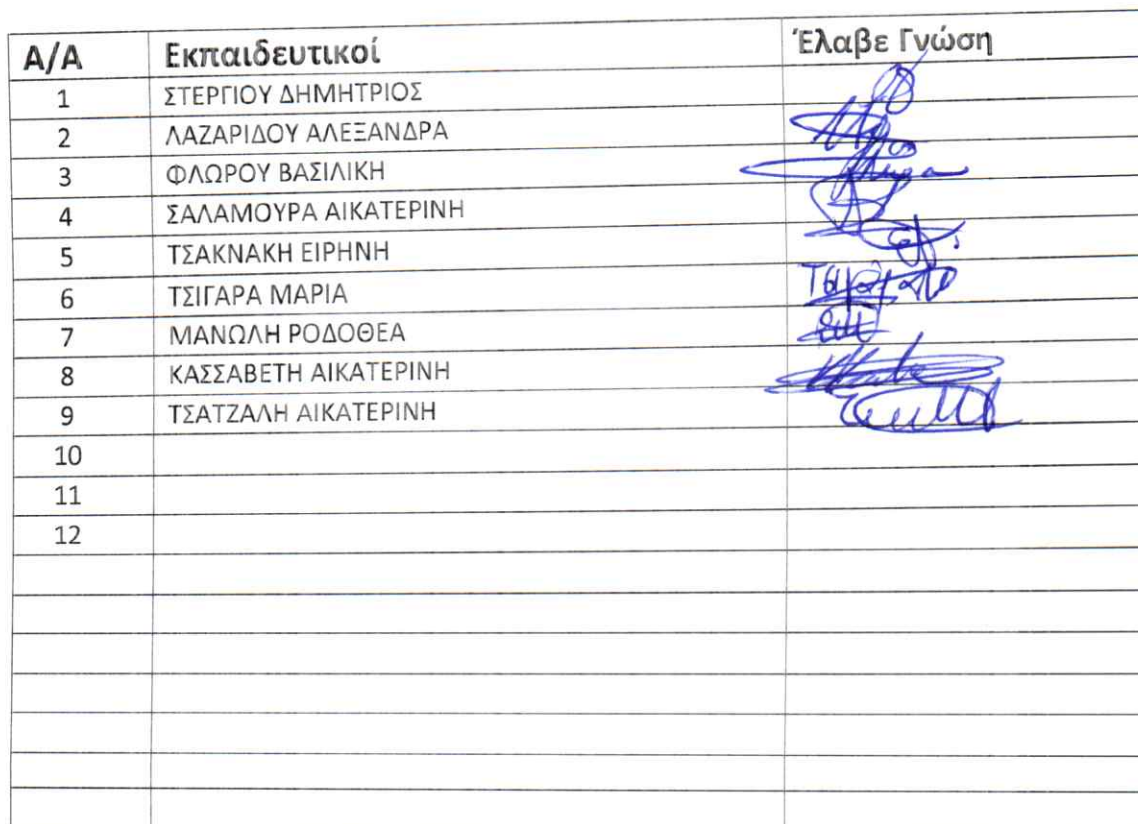 Α/Α Εκπαιδευτικοί Έλαβε Γνώση
1 ΣΤΕΡΓΙΟΥ ΔΗΜΗΤΡΙΟΣ
2 ΛΑΖΑΡΙΔΟΥ ΑΛΕΞΑΝΔΡΑ
3 ΦΛΩΡΟΥ ΒΑΣΙΛΙΚΗ
4 ΣΑΛΑΜΟΥΡΑ ΑΙΚΑΤΕΡΙΝΗ
5 ΤΣΑΚΝΑΚΗ ΕΙΡΗΝΗ
6 ΤΣΙΓΑΡΑ ΜΑΡΙΑ
7 ΜΑΝΩΛΗ ΡΟΔΟΘΕΑ
8 ΚΑΣΣΑΒΕΤΗ ΑΙΚΑΤΕΡΙΝΗ
9 ΤΣΑΤΖΑΛΗ ΑΙΚΑΤΕΡΙΝΗ
10
11
12